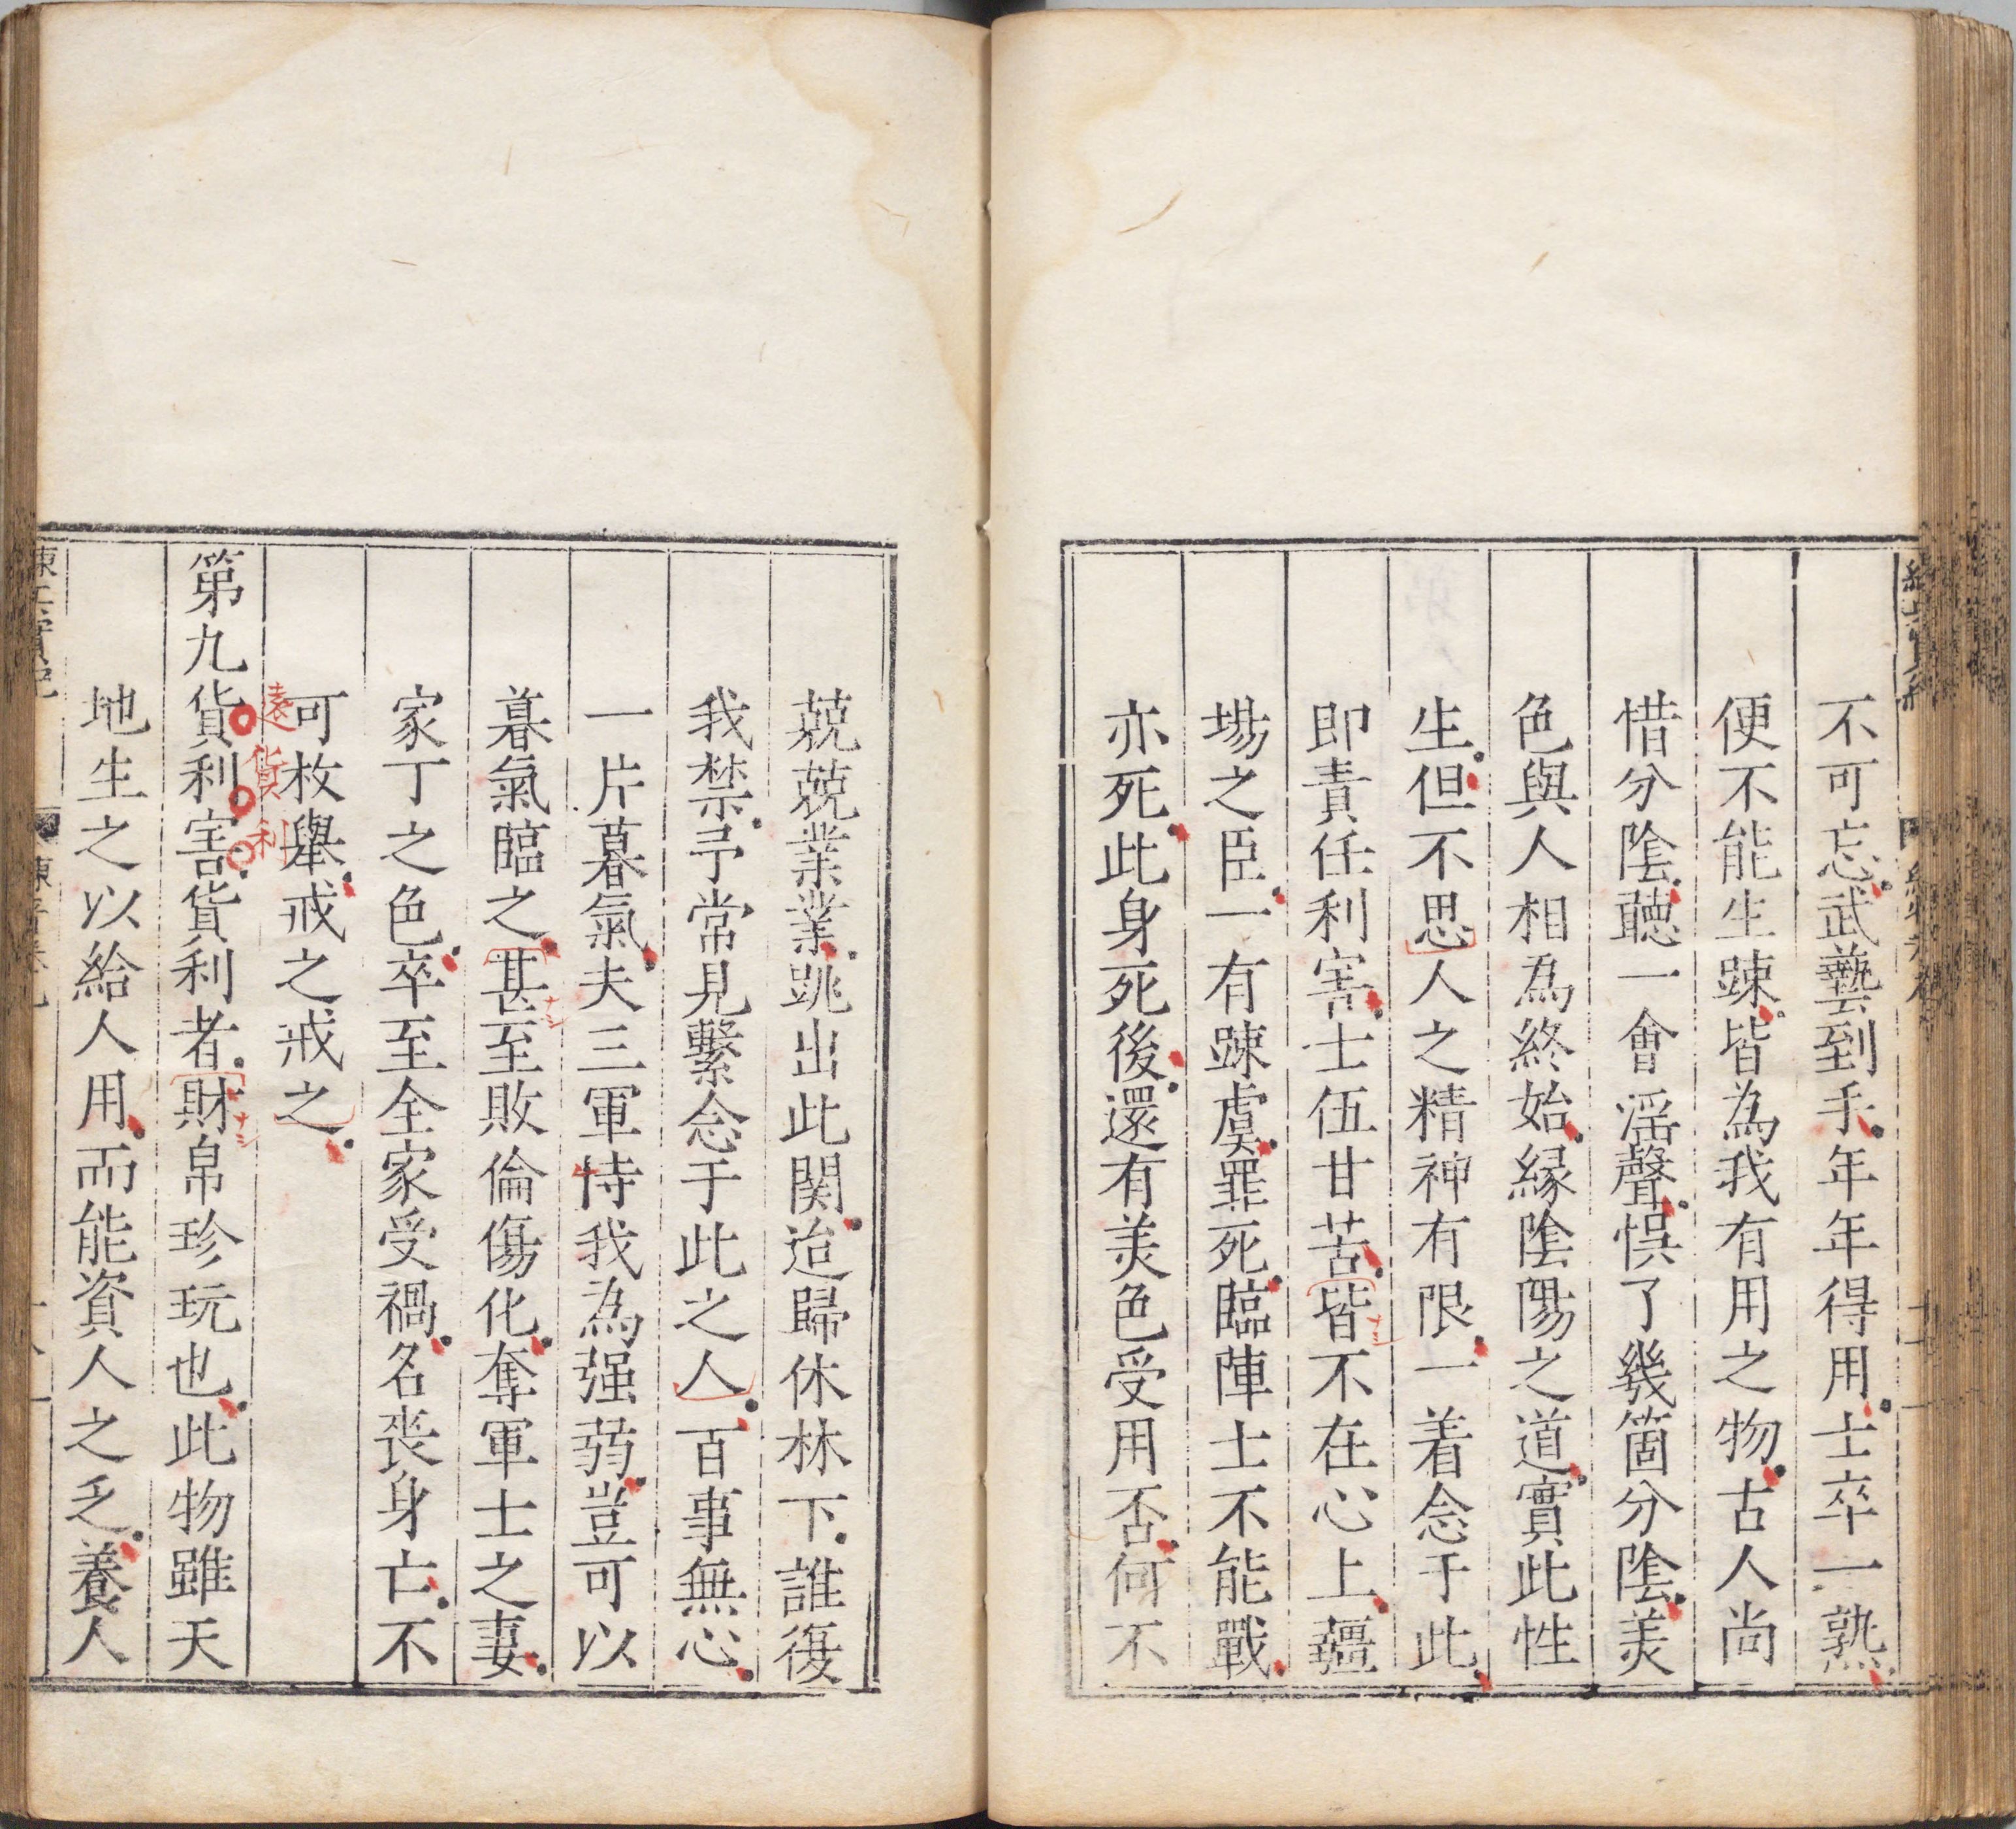 不可忘武藝到手年年得用士卒一熟
便不能生踈皆為我有用之物古人尚
惜分陰聽一會淫聲悮了幾箇分陰美
色與人相為終始緣陰陽之道實此性
生但不思人之精神有限一着念于此
即責任利害士伍甘苦皆不在心上疆
場之臣一有踈虞罪死臨陣士不能戰
亦死此身死後還有美色受用否何不
兢兢業業跳出此関迨歸休林下誰復
我禁予常見繫念于此之人百事無心
一片暮氣夫三軍恃我為强弱豈可以
暮氣臨之甚至敗倫傷化奪軍士之妻
家丁之色卒至全家受禍名喪身亡不
可枚舉戒之戒之
遠貨利
第九貨利害貨利者財帛珍玩也此物雖天
地生之以給人用而能資人之乏養人